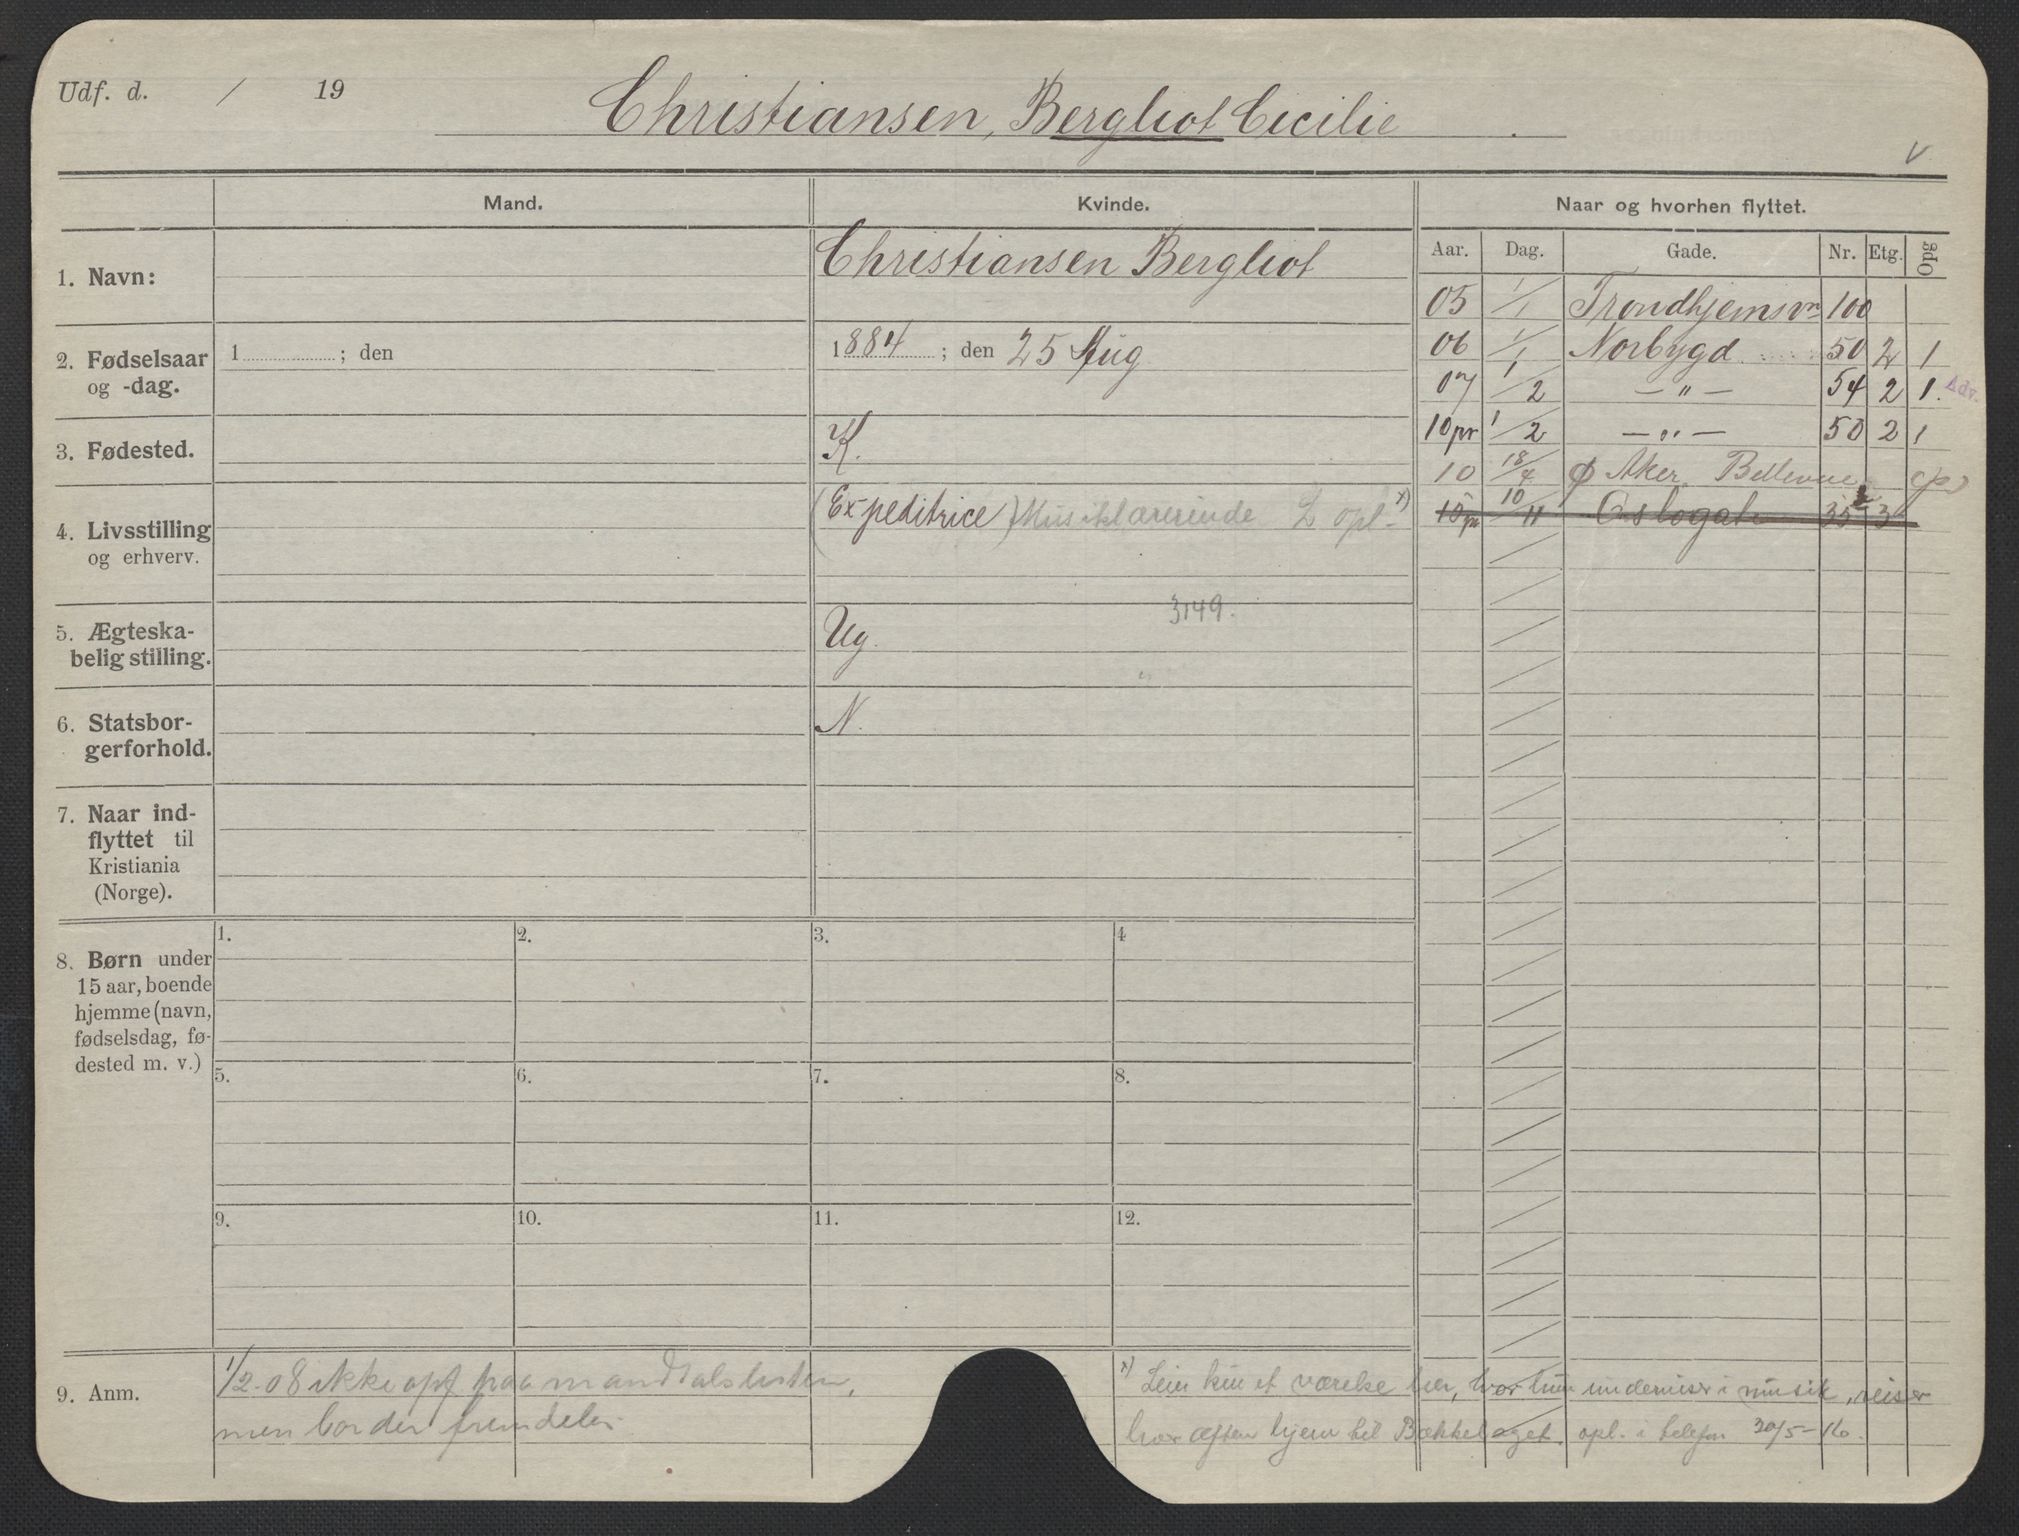 Udf. d. / 19
Christiansen, Bergliot Cicilie
V
Mand. Kvinde. Naar og hvorhen flyttet.
Aar. Dag. Gade. Nr. Etg. Opg
1. Navn: Christiansen Bergliot
05 1/1 Trondhjemsvn 100
2. Fødselsaar og -dag. 1 ; den 1884 ; den 25 Aug
06 1/1 Norbygd 50 2 1
07 1/2 — " — 54 2 1. Adv.
3. Fødested. K.
10pr 1/2 — " — 50 2 1
10 18/4 Ø Aker Bellevue
4. Livsstilling og erhverv. (Expeditrice) Musiklærerinde L opl. x)
15pr 10/11 Oslogat 35 3
3149.
5. Ægteska-
belig stilling. Ug.
6. Statsbor-
gerforhold. N.
7. Naar ind-
flyttet til
Kristiania
(Norge).
8. Børn under
15 aar, boende
hjemme (navn,
fødselsdag, fø-
dested m. v.)
1. 2. 3. 4
5. 6. 7. 8.
9. 10. 11. 12.
9. Anm.
1/2-08 ikke opf paa mandtalslisten,
men bor der fremdeles
x) Leier kun et værelse her, hvor hun underviser i musik, reiser
hver aften hjem til Bækkelaget. opl. i telefon 30/5-16.